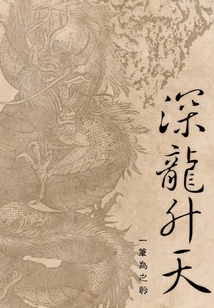 深龍升天
一筆為之聆